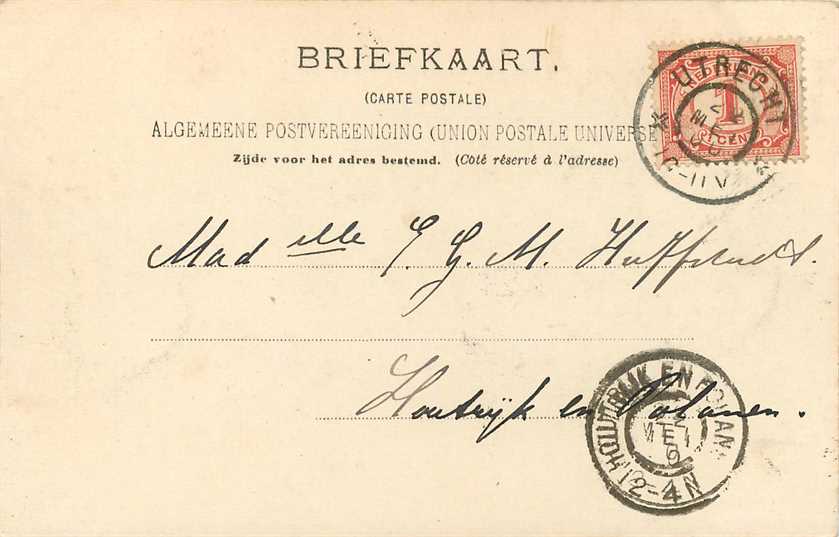 BRIEFKAART.
(CARTE POSTALE)
ALGEMEENE POSTVEREENIGING (UNION POSTALE UNIVERSE
Zijde voor het adres bestemd. (Côté réservé à l'adresse)
UTRECHT
MEI
1
CENT
Mad elle G. M.
Houtrijk en Polanen.
RIJK EN POLAN
MEI
12-4N